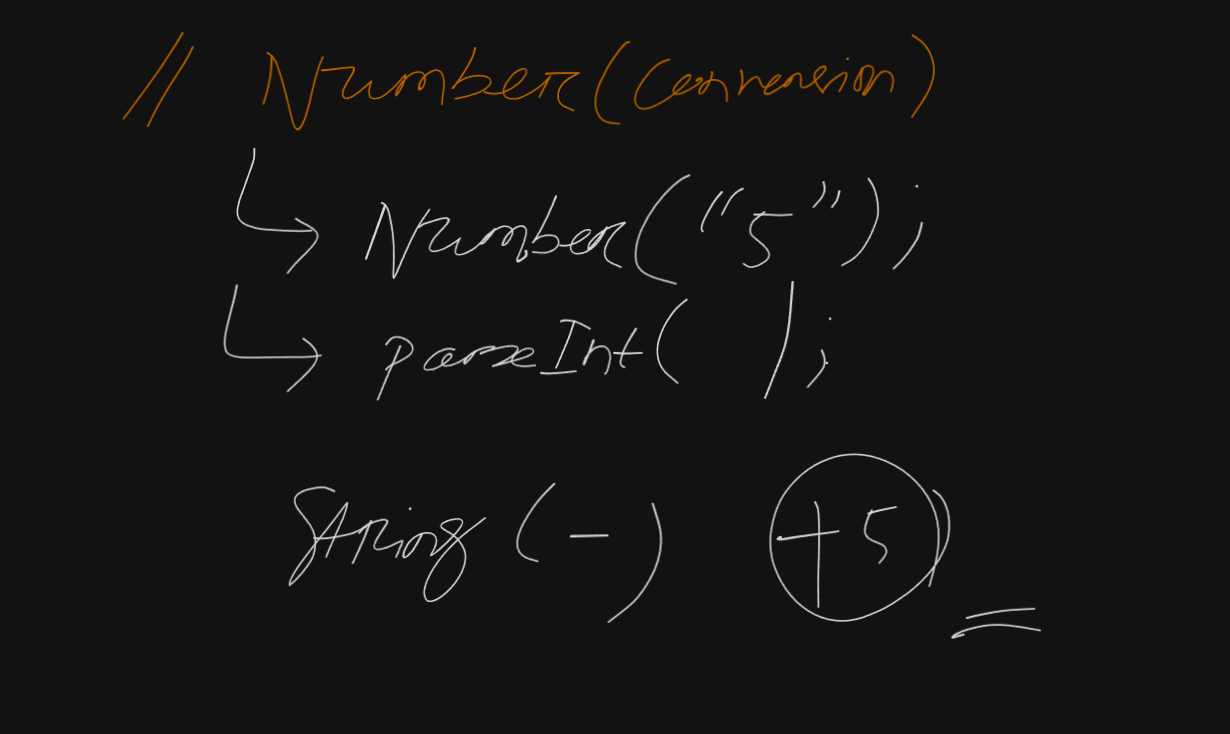 // Number(Conversion)
Number("5");
parseInt( );
String(-) +5